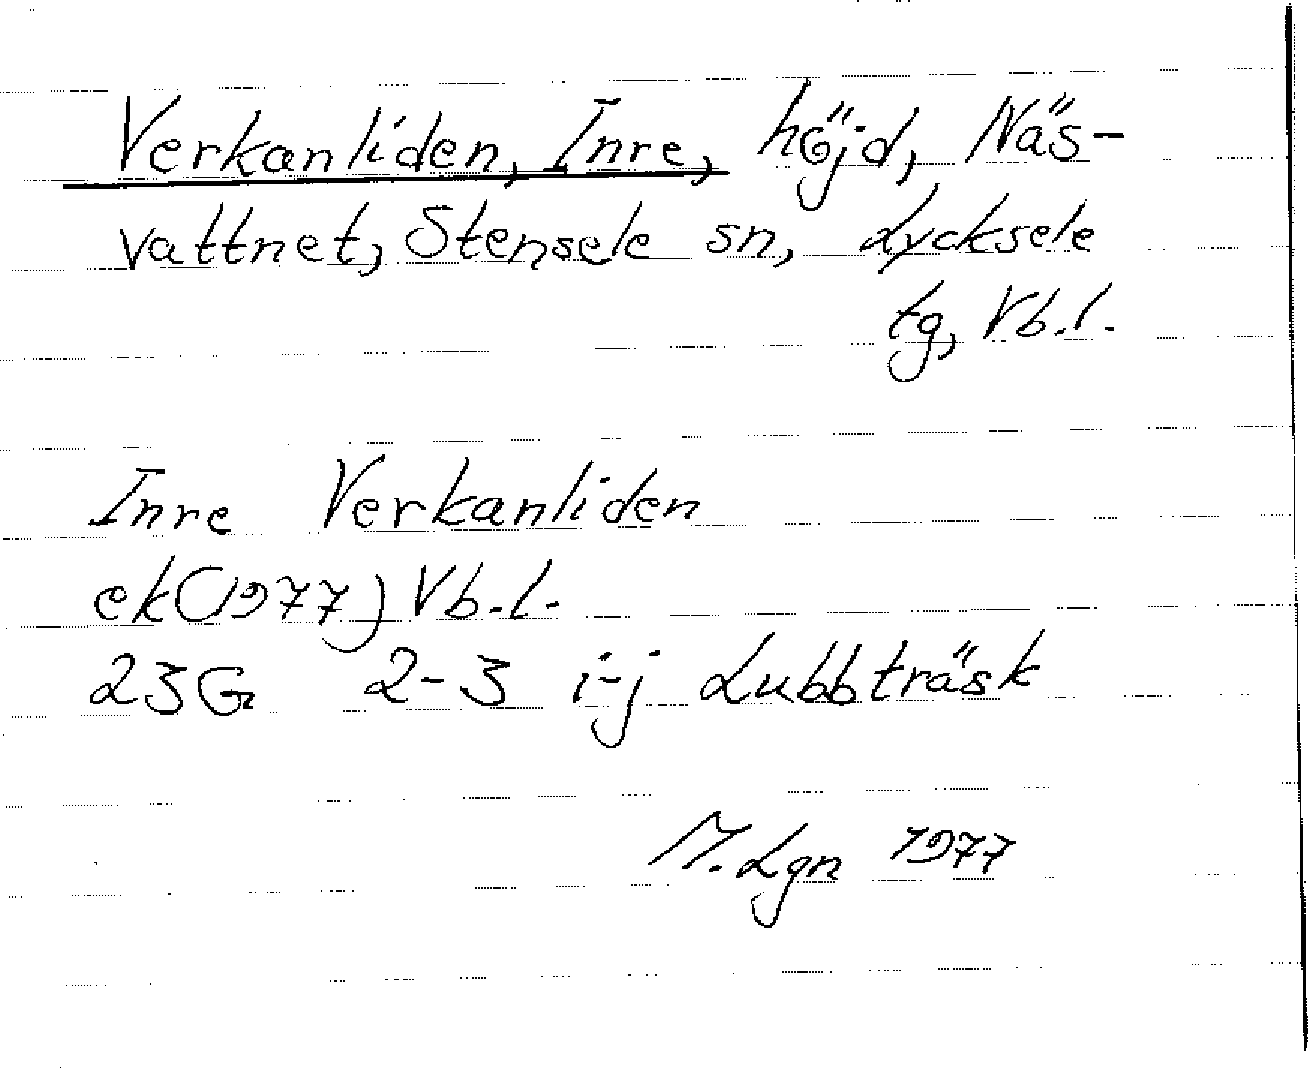 Verkanliden, Inre, höjd, Näs-
vattnet, Stensele sn, Lycksele
tg, Vb.l.
Inre Verkanliden
ek(1977) Vb.l.
23G 2-3 i-j Lubbträsk
M. Lgn 1977